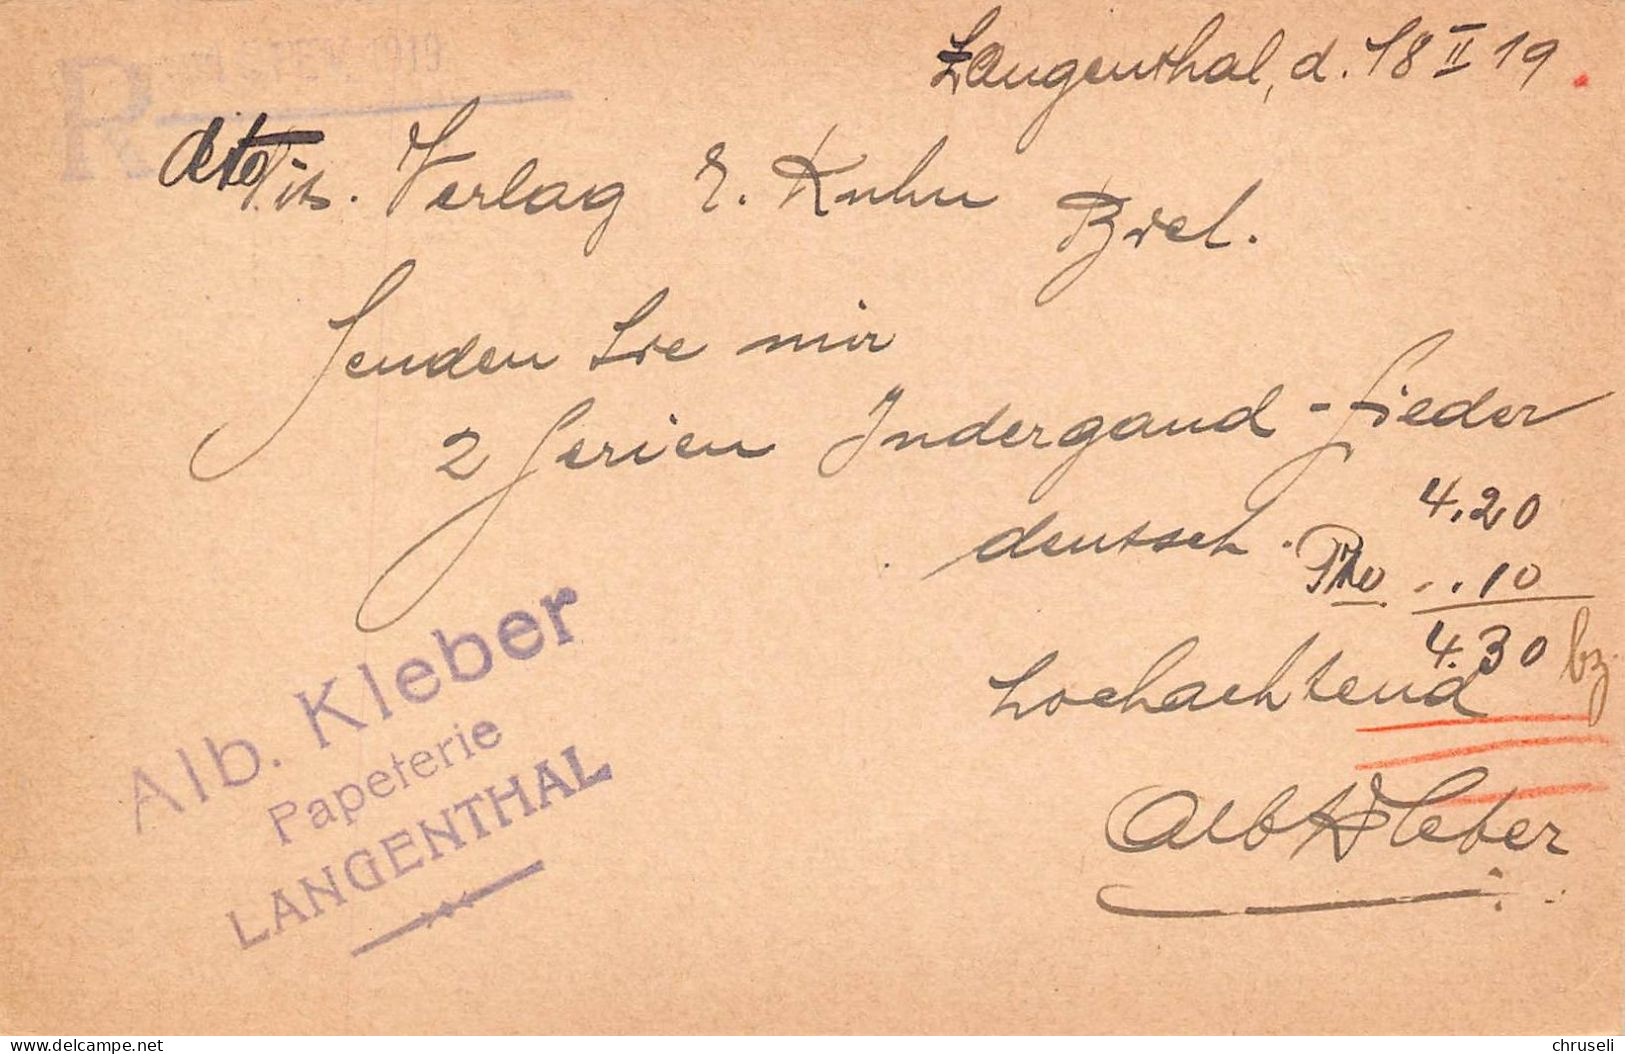 Langenthal, d. 18 II 19.
R 1919
Verlag E. Kuhn
Biel.
Senden Sie mir
2 Serien Indergand-Lieder
deutsch.
4.20
Pto ..10
4.30 bz
hochachtend
Alb Kleber
Alb. Kleber
Papeterie
LANGENTHAL
www.delcampe.net
chruseli